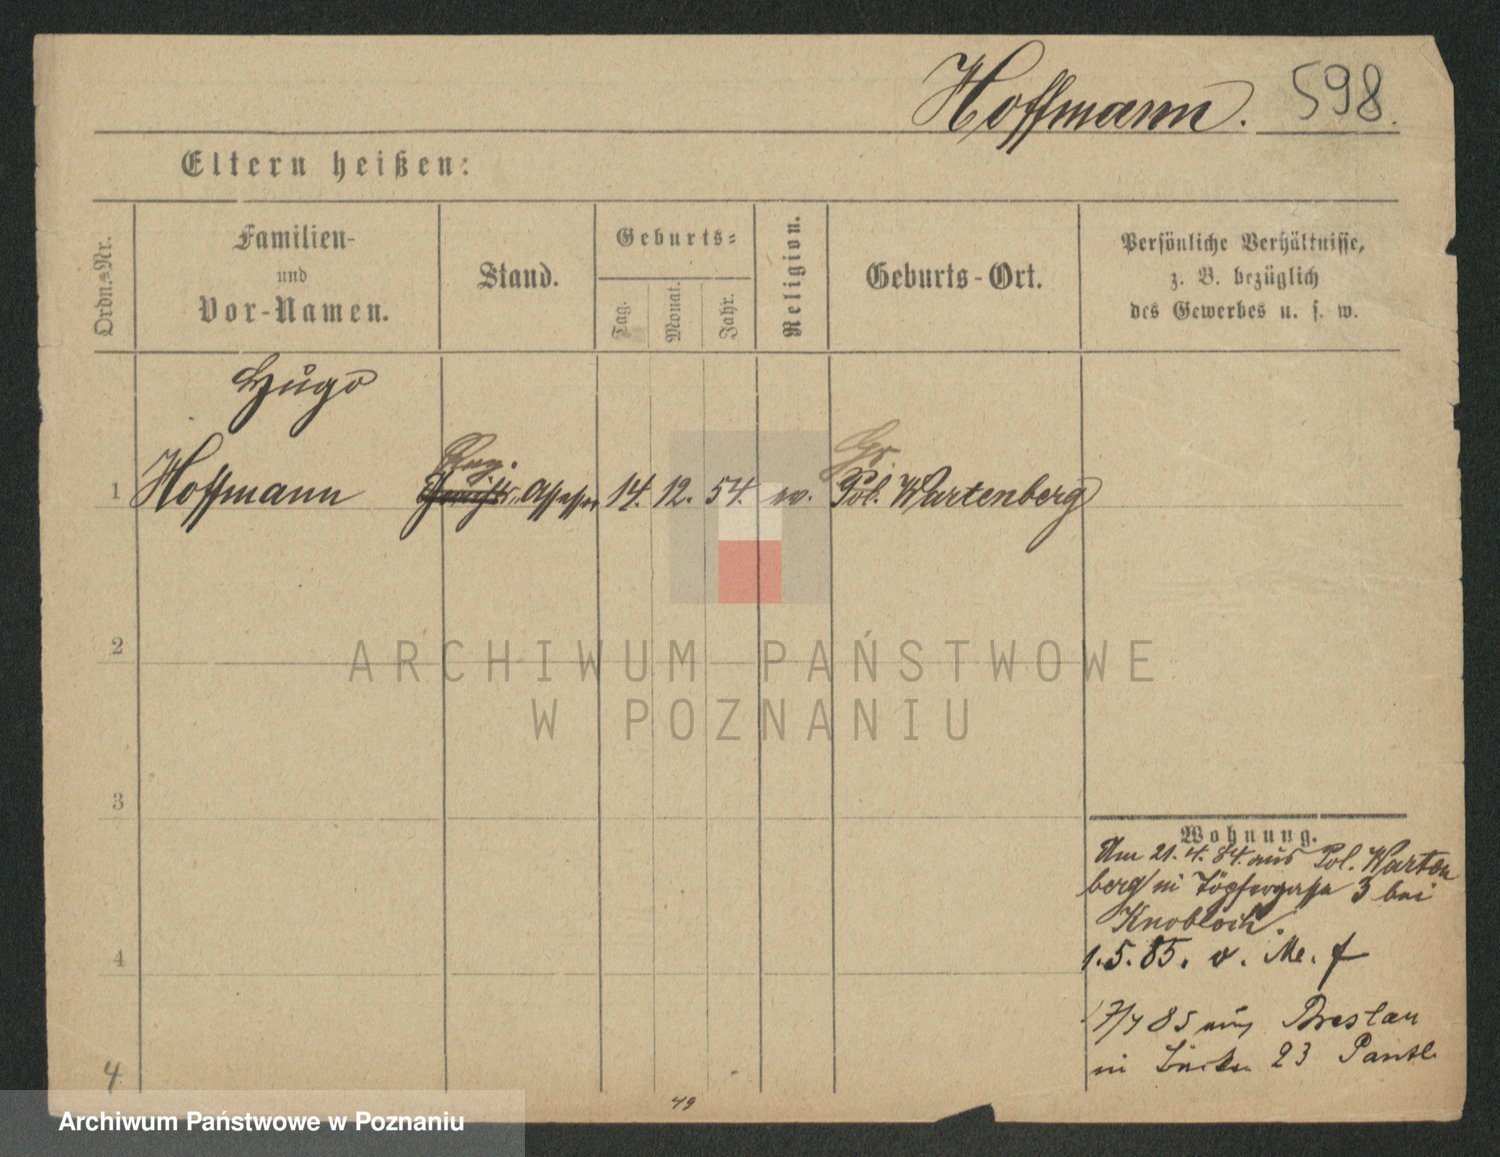 Hoffmann. 598.
Eltern heißen:
Ordn.-Nr.
Familien-
und
Vor-Namen.
Stand.
Geburts-
Tag.
Monat.
Jahr.
Religion.
Geburts-Ort.
Persönliche Verhältnisse,
z. B. bezüglich
des Gewerbes u. s. w.
Hugo
Reg.
Gr.
1 Hoffmann Gerichts-Assessor 14. 12. 54. ev. Pol. Wartenberg
2
ARCHIWUM PAŃSTWOWE
W POZNANIU
3
Wohnung.
Am 21.4.84. aus Pol. Warten
berg in Töpfergasse 3 bei
Knobloch.
4
1.5.85. v.
7/7 85 aus Breslau
in 23
4
49
Archiwum Państwowe w Poznaniu